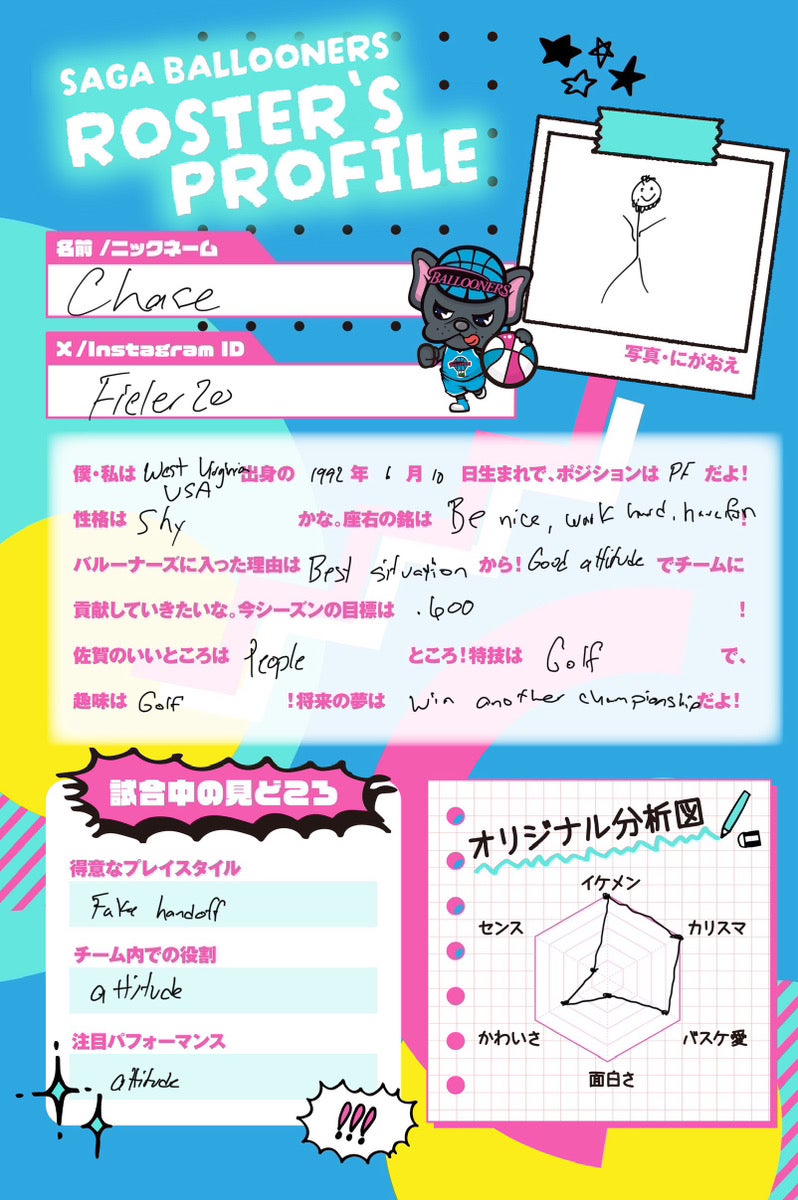 SAGA BALLOONERS
ROSTER'S
PROFILE
名前 /ニックネーム
Chase
BALLOONERS
X /Instagram ID
Fieler20
写真・にがおえ
僕・私は West Virginia USA 出身の 1992 年 6 月 10 日生まれで、ポジションは PF だよ!
性格は Shy かな。座右の銘は Be nice, work hard, have fun !
バルーナーズに入った理由は Best situation から! Good attitude でチームに
貢献していきたいな。今シーズンの目標は .600 !
佐賀のいいところは People ところ!特技は Golf で、
趣味は Golf !将来の夢は win another championship だよ!
試合中の見どころ
得意なプレイスタイル
Fake handoff
チーム内での役割
attitude
注目パフォーマンス
attitude
!!!
オリジナル分析図
イケメン
センス
カリスマ
かわいさ
バスケ愛
面白さ